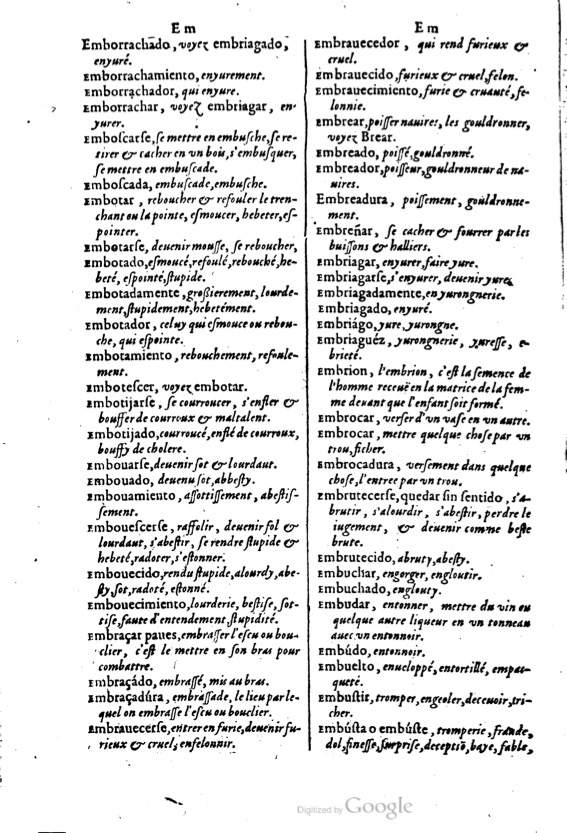 E m
Emborrachado, voyez embriagado,
enyuré.
Emborrachamiento, enyurement.
Emborrachador, qui enyure.
Emborrachar, voyez embriagar, en-
yurer.
Emboſcarſe, ſe mettre en embuſche, ſe re-
tirer & cacher en vn bois, s'embuſquer,
ſe mettre en embuſcade.
Emboſcada, embuſcade, embuſche.
Embotar, reboucher & refouler le tren-
chant ou la pointe, eſmoucer, hebeter, eſ-
pointer.
Embotarſe, deuenir mouſſe, ſe reboucher,
Embotado, eſmoucé, refoulé, rebouché, he-
beté, eſpointé, ſtupide.
Embotadamente, großierement, lourde-
ment, ſtupidement, hebetément.
Embotador, celuy qui eſmouce ou rebou-
che, qui eſpointe.
Embotamiento, rebouchement, refoule-
ment.
Emboteſcer, voyez embotar.
Embotijarſe, ſe courroucer, s'enfler &
bouffer de courroux & maltalent.
Embotijado, courroucé, enflé de courroux,
bouffy de cholere.
Embouarſe, deuenir ſot & lourdaut.
Embouado, deuenu ſot, abbeſty.
Embouamiento, aſſottiſſement, abeſtiſ-
ſement.
Emboueſcerſe, raffolir, deuenir fol &
lourdaut, s'abeſtir, ſe rendre ſtupide &
hebeté, radoter, s'eſtonner.
Embouecido, rendu ſtupide, alourdy, abe-
ſty, ſot, radoté, eſtonné.
Embouecimiento, lourderie, beſtiſe, ſot-
tiſe, faute d'entendement, ſtupidité.
Embraçar paues, embraſſer l'eſcu ou bou-
clier, c'eſt le mettre en ſon bras pour
combattre.
Embraçádo, embraſſé, mis au bras.
Embraçadúra, embraſſade, le lieu par le-
quel on embraſſe l'eſcu ou bouclier.
Embrauecerſe, entrer en furie, deuenir fu-
rieux & cruel, enfelonnir.
E m
Embrauecedor, qui rend furieux &
cruel.
Embrauecido, furieux & cruel, felon.
Embrauecimiento, furie & cruauté, fe-
lonnie.
Embrear, poiſſer nauires, les gouldronner,
voyez Brear.
Embreado, poiſſé, gouldronné.
Embreador, poiſſeur, gouldronneur de na-
uires.
Embreadura, poiſſement, gouldronne-
ment.
Embreñar, ſe cacher & fourrer par les
buiſſons & halliers.
Embriagar, enyurer, faire yure.
Embriagarſe, s'enyurer, deuenir yure.
Embriagadamente, en yurongnerie.
Embriagado, enyuré.
Embriágo, yure, yurongne.
Embriaguéz, yurongnerie, yureſſe, e-
brieté.
Embrion, l'embrion, c'eſt la ſemence de
l'homme receuë en la matrice de la fem-
me deuant que l'enfant ſoit formé.
Embrocar, verſer d'vn vaſe en vn autre.
Embrocar, mettre quelque choſe par vn
trou, ficher.
Embrocadura, verſement dans quelque
choſe, l'entree par vn trou.
Embrutecerſe, quedar ſin ſentido, s'a-
brutir, s'alourdir, s'abeſtir, perdre le
iugement, & deuenir comme beſte
brute.
Embrutecido, abruty, abeſty.
Embuchar, engorger, engloutir.
Embuchado, englouty.
Embudar, entonner, mettre du vin ou
quelque autre liqueur en vn tonneau
auec vn entonnoir.
Embúdo, entonnoir.
Embuelto, enueloppé, entortillé, empac-
queté.
Embuſtir, tromper, engeoler, deceuoir, tri-
cher.
Embúſta o embúſte, tromperie, fraude,
dol, fineſſe, ſurpriſe, deceptiõ, baye, fable,
Digitized by Google